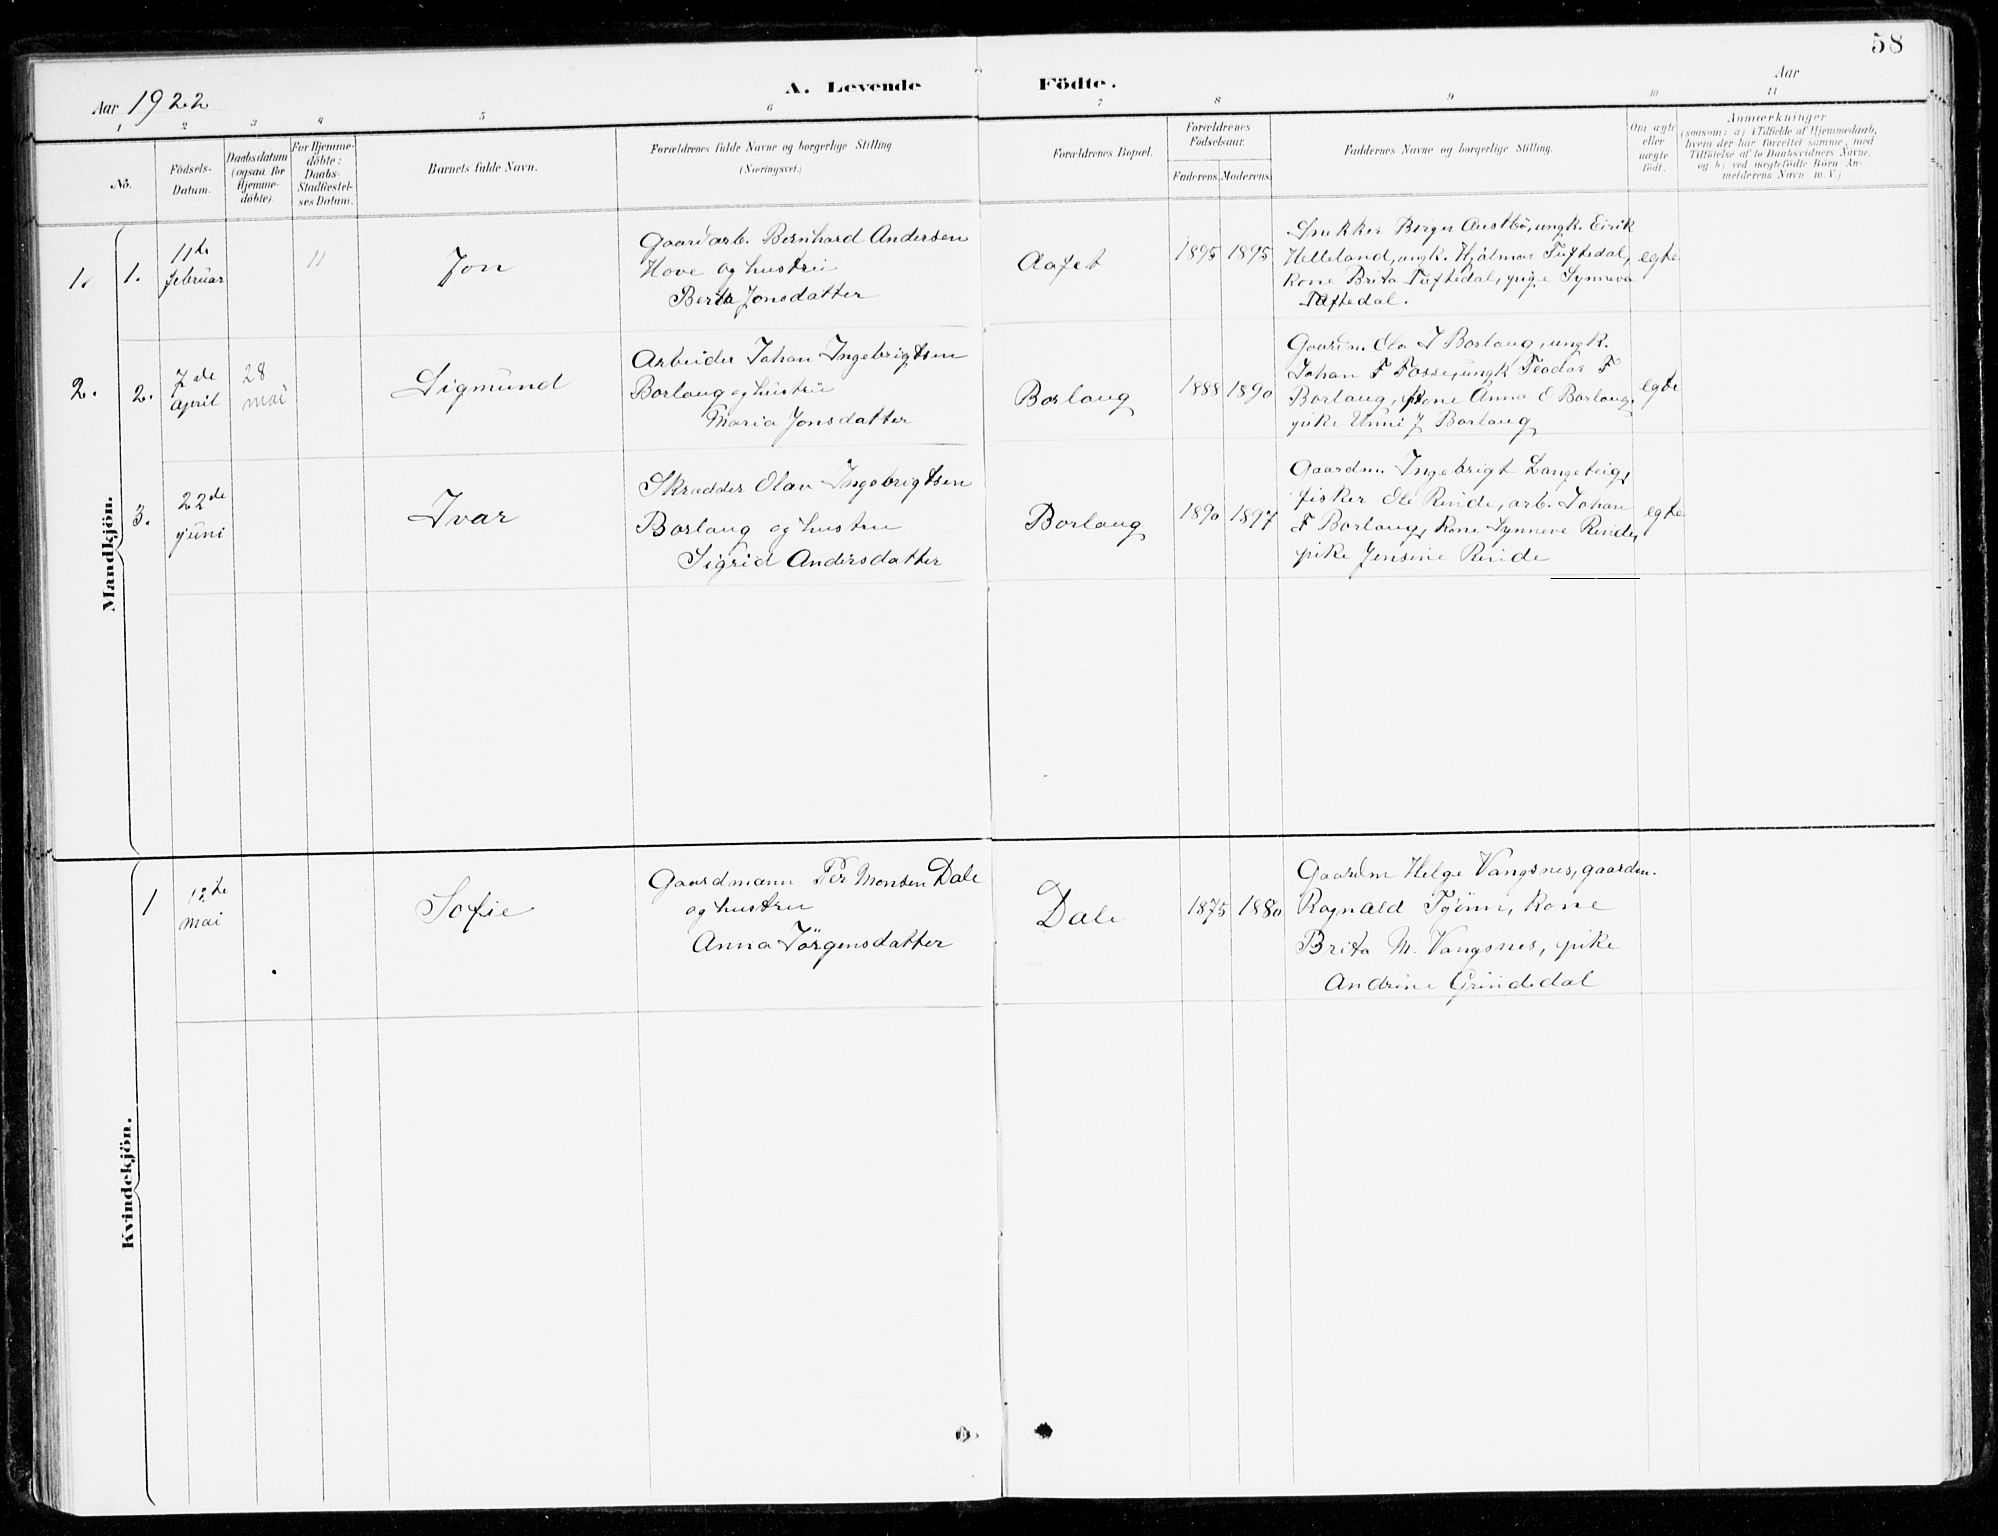 58
Aar 1922
A. Levende Födte.
Aar
1 2 3 4 5 6 7 8 9 10 11
No.
Födsels-
Datum.
Daabsdatum
(ogsaa for
Hjemme-
döbte).
For Hjemme-
döbte:
Daabs-
Stadfæstel-
ses Datum.
Barnets fulde Navn.
Forældrenes fulde Navne og borgerlige Stilling
(Næringsvei.)
Forældrenes Bopæl.
Forældrenes
Födselsaar.
Faderens. Moderens.
Faddernes Navne og borgerlige Stilling.
Om ægte
eller
uægte
födt.
Anmærkninger
(saasom: a) i Tilfælde af Hjemmedaab,
hvem der har forrettet samme, med
Tilföielse af to Daabsvidners Navne,
og b) ved uegtefödte Börn An-
melderens Navn m. V.)
Mandkjön.
1. 1.
11te
februar
11
Jon
Gaardarb. Bernhard Andersen
Hove og hustru
Berta Jonsdatter
Aafet
1895 1895
Snekker Birger Austbö, ungk. Eirik
Helleland, ungk. Hjalmar Tuftedal,
kone Brita Tuftedal, pige Synneva
Tuftedal.
egte
2. 2.
7de
april
28
mai
Sigmund
Arbeider Johan Ingebrigtsen
Borlaug og hustru
Maria Jonsdatter
Borlaug
1888 1890
Gaardm. Ola J Borlaug, ungk.
Johan F Fosse, ungk Teodor F
Borlaug, kone Anna E Borlaug,
pike Unni J Borlaug
egte
3.
22de
juni
Ivar
Skrædder Olav Ingebrigtsen
Borlaug og hustru
Sigrid Andersdatter
Borlaug
1890 1897
Gaardm. Ingebrigt Langeteig,
fisker Ole Rinde, arb. Johan
F Borlaug, kone Synneve Rinde,
pike Jensine Rinde
egte
Kvindekjön.
1
12te
mai
Sofie
Gaardmann Per Monsen Dale
og hustru
Anna Jörgensdatter
Dale
1875 1880
Gaardm Helge Vangsnes, gaardm.
Ragnald Tjönn, kone
Brita M. Vangsnes, pike
Andrine Grindedal